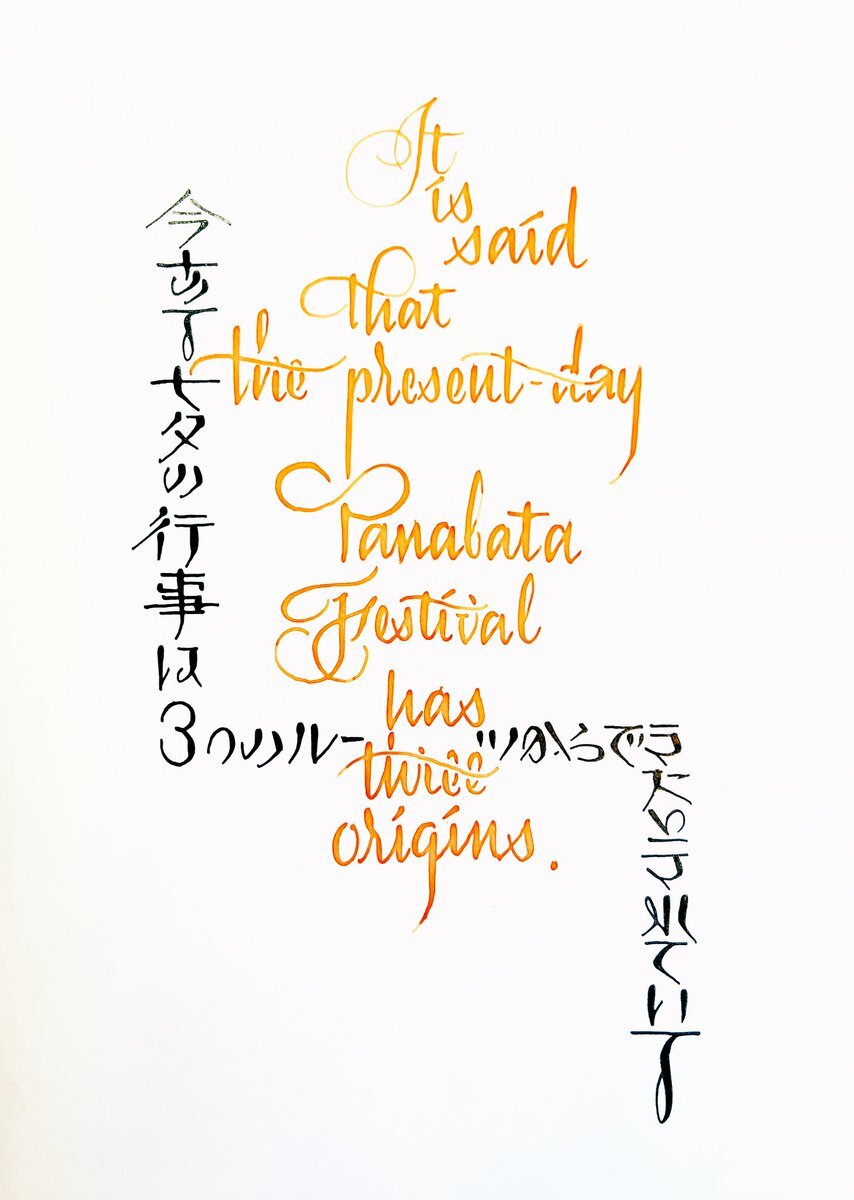 It
is
said
That
the present-day
Tanabata
Festival
has
three
origins.
今ある七夕の行事は
3つのルーツからで